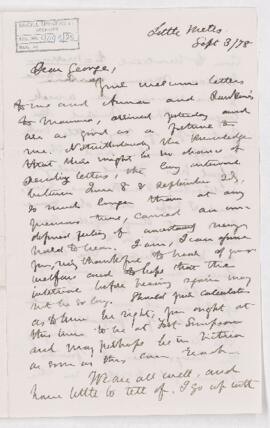 Little Metis,
Sept 3/78
Dear George,
Your welcome letters
to me and Anna and Rankine's
to Mamma, arrived yesterday and
are as good as a fortune to
me. Notwithstanding the knowledge
that there might be no chance of
sending letters, the long interval
between June 8 & September 2d,
so much longer than at any
previous time, caused an un-
defined feeling of uncertainty very
hard to bear. I am, I can assure
you, very thankful to hear of your
welfare and to hope that the
interval before hearing again may
not be so long. Should your calculation
as to time be right, you ought at
this time to be at Fort Simpson
and may perhaps be in Victoria
as soon as this can reach.
We are all well, and
have little to tell of. I go up with